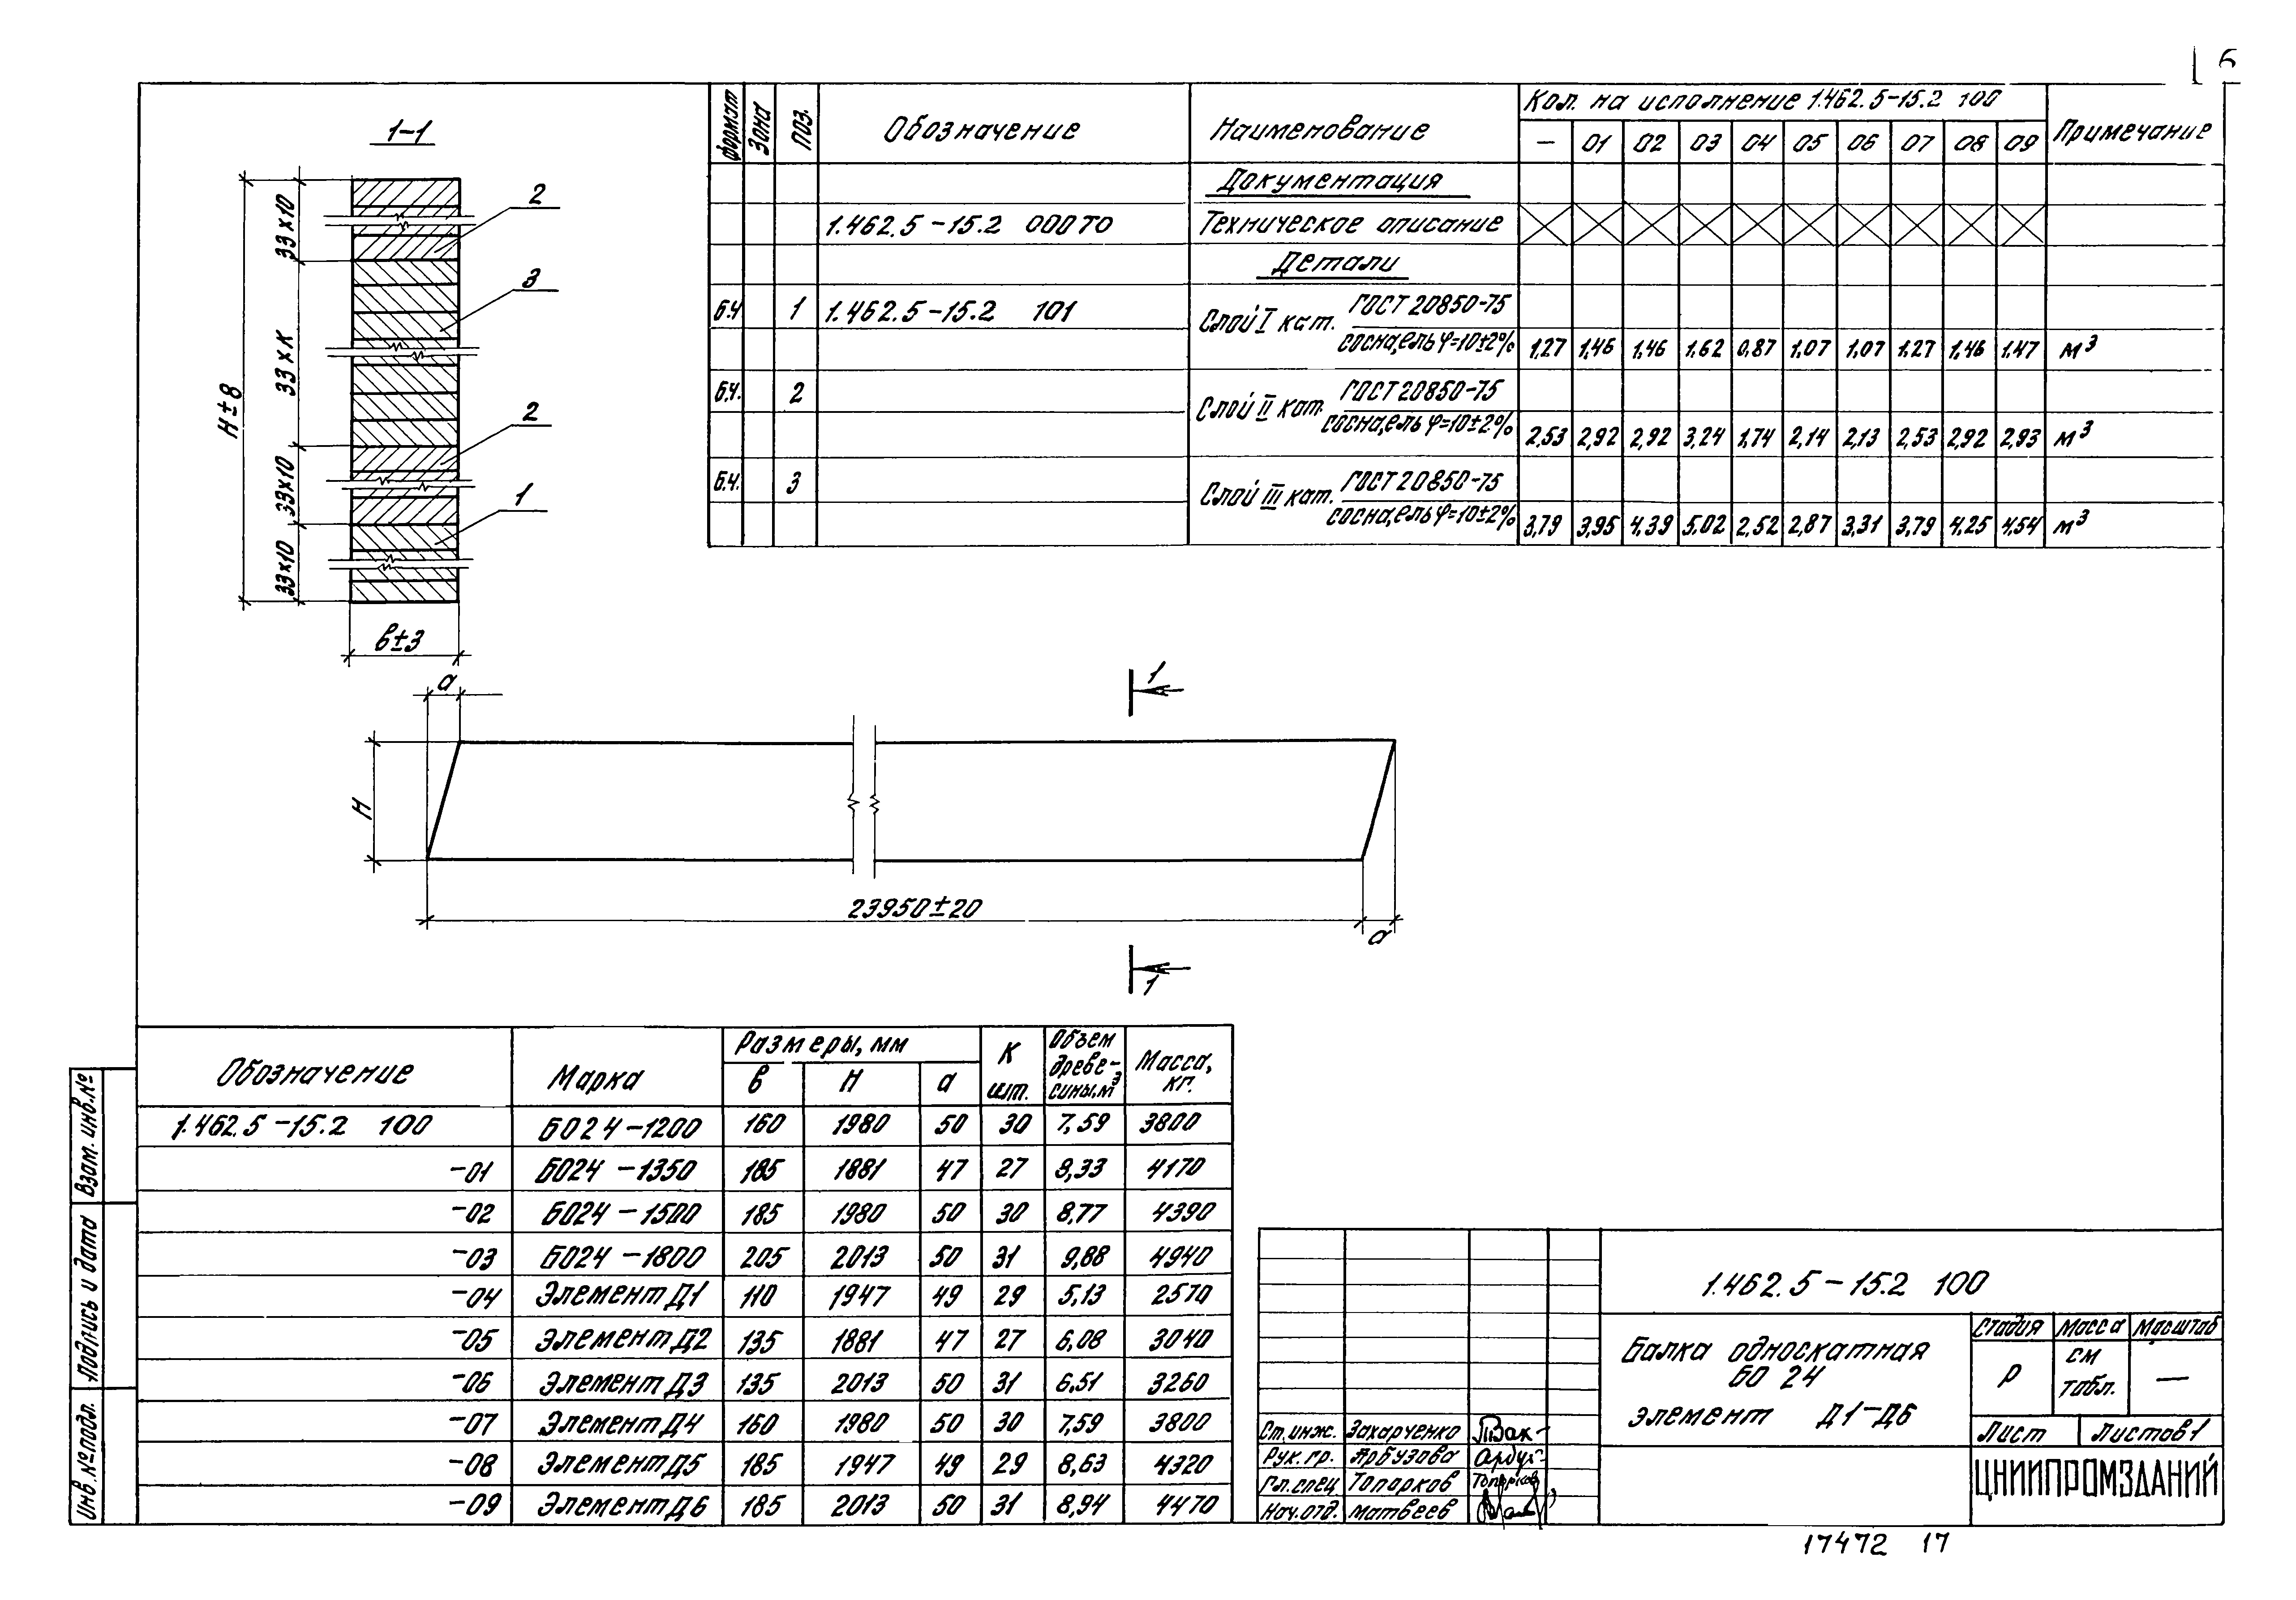 6
1-1
H±8
33×10
33×К
33×10
33×10
2
3
2
1
в±3
Формат Зона Поз. Обозначение Наименование Кол. на исполнение 1.462.5-15.2 100 Примечание
— 01 02 03 04 05 06 07 08 09
Документация
1.462.5-15.2 000ТО Техническое описание
Детали
Б.Ч 1 1.462.5-15.2 101 Слой I кат. ГОСТ 20850-75
сосна,ель φ=10±2% 1,27 1,46 1,46 1,62 0,87 1,07 1,07 1,27 1,46 1,47 м³
Б.Ч. 2 Слой II кат. ГОСТ 20850-75
сосна,ель φ=10±2% 2,53 2,92 2,92 3,24 1,74 2,14 2,13 2,53 2,92 2,93 м³
Б.Ч. 3 Слой III кат. ГОСТ 20850-75
сосна,ель φ=10±2% 3,79 3,95 4,39 5,02 2,52 2,87 3,31 3,79 4,25 4,54 м³
а
1
H
23950±20
а
1
Обозначение Марка Размеры, мм К шт. Объем древесины,м³ Масса, кг.
в H а
1.462.5-15.2 100 БО24-1200 160 1980 50 30 7,59 3800
-01 БО24-1350 185 1881 47 27 8,33 4170
-02 БО24-1500 185 1980 50 30 8,77 4390
-03 БО24-1800 205 2013 50 31 9,88 4940
-04 Элемент Д1 110 1947 49 29 5,13 2570
-05 Элемент Д2 135 1881 47 27 6,08 3040
-06 Элемент Д3 135 2013 50 31 6,51 3260
-07 Элемент Д4 160 1980 50 30 7,59 3800
-08 Элемент Д5 185 1947 49 29 8,63 4320
-09 Элемент Д6 185 2013 50 31 8,94 4470
Взам. инв.№
Подпись и дата
Инв.№подл.
1.462.5-15.2 100
Балка односкатная
БО 24
элемент Д1-Д6
Стадия Масса Масштаб
Р см табл. —
Лист Листов 1
ЦНИИПРОМЗДАНИЙ
Ст.инж. Захарченко
Рук.гр. Арбузова
Гл.спец Топорков
Нач.отд. Матвеев
17472 17